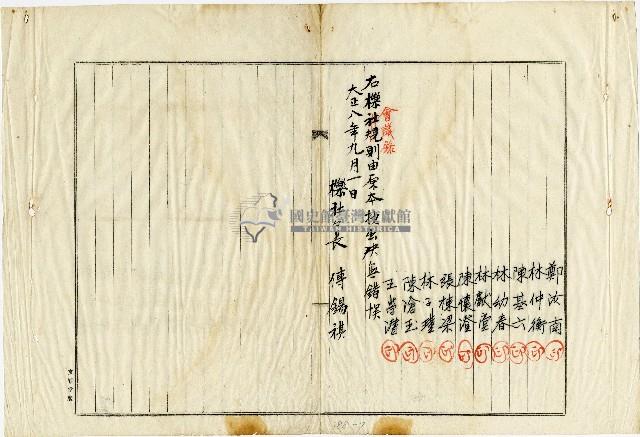 鄭汝南㊞
林仲衡㊞
陳基六㊞
林幼春㊞
林獻堂㊞
陳懷澄㊞
張棟梁㊞
林子瑾㊞
陳滄玉㊞
王學潛㊞
會議錄
右櫟社規則由原本抄出決無錯悞
大正八年九月一日
櫟社社長 傅錫祺
國史館臺灣文獻館
TAIWAN HISTORICA